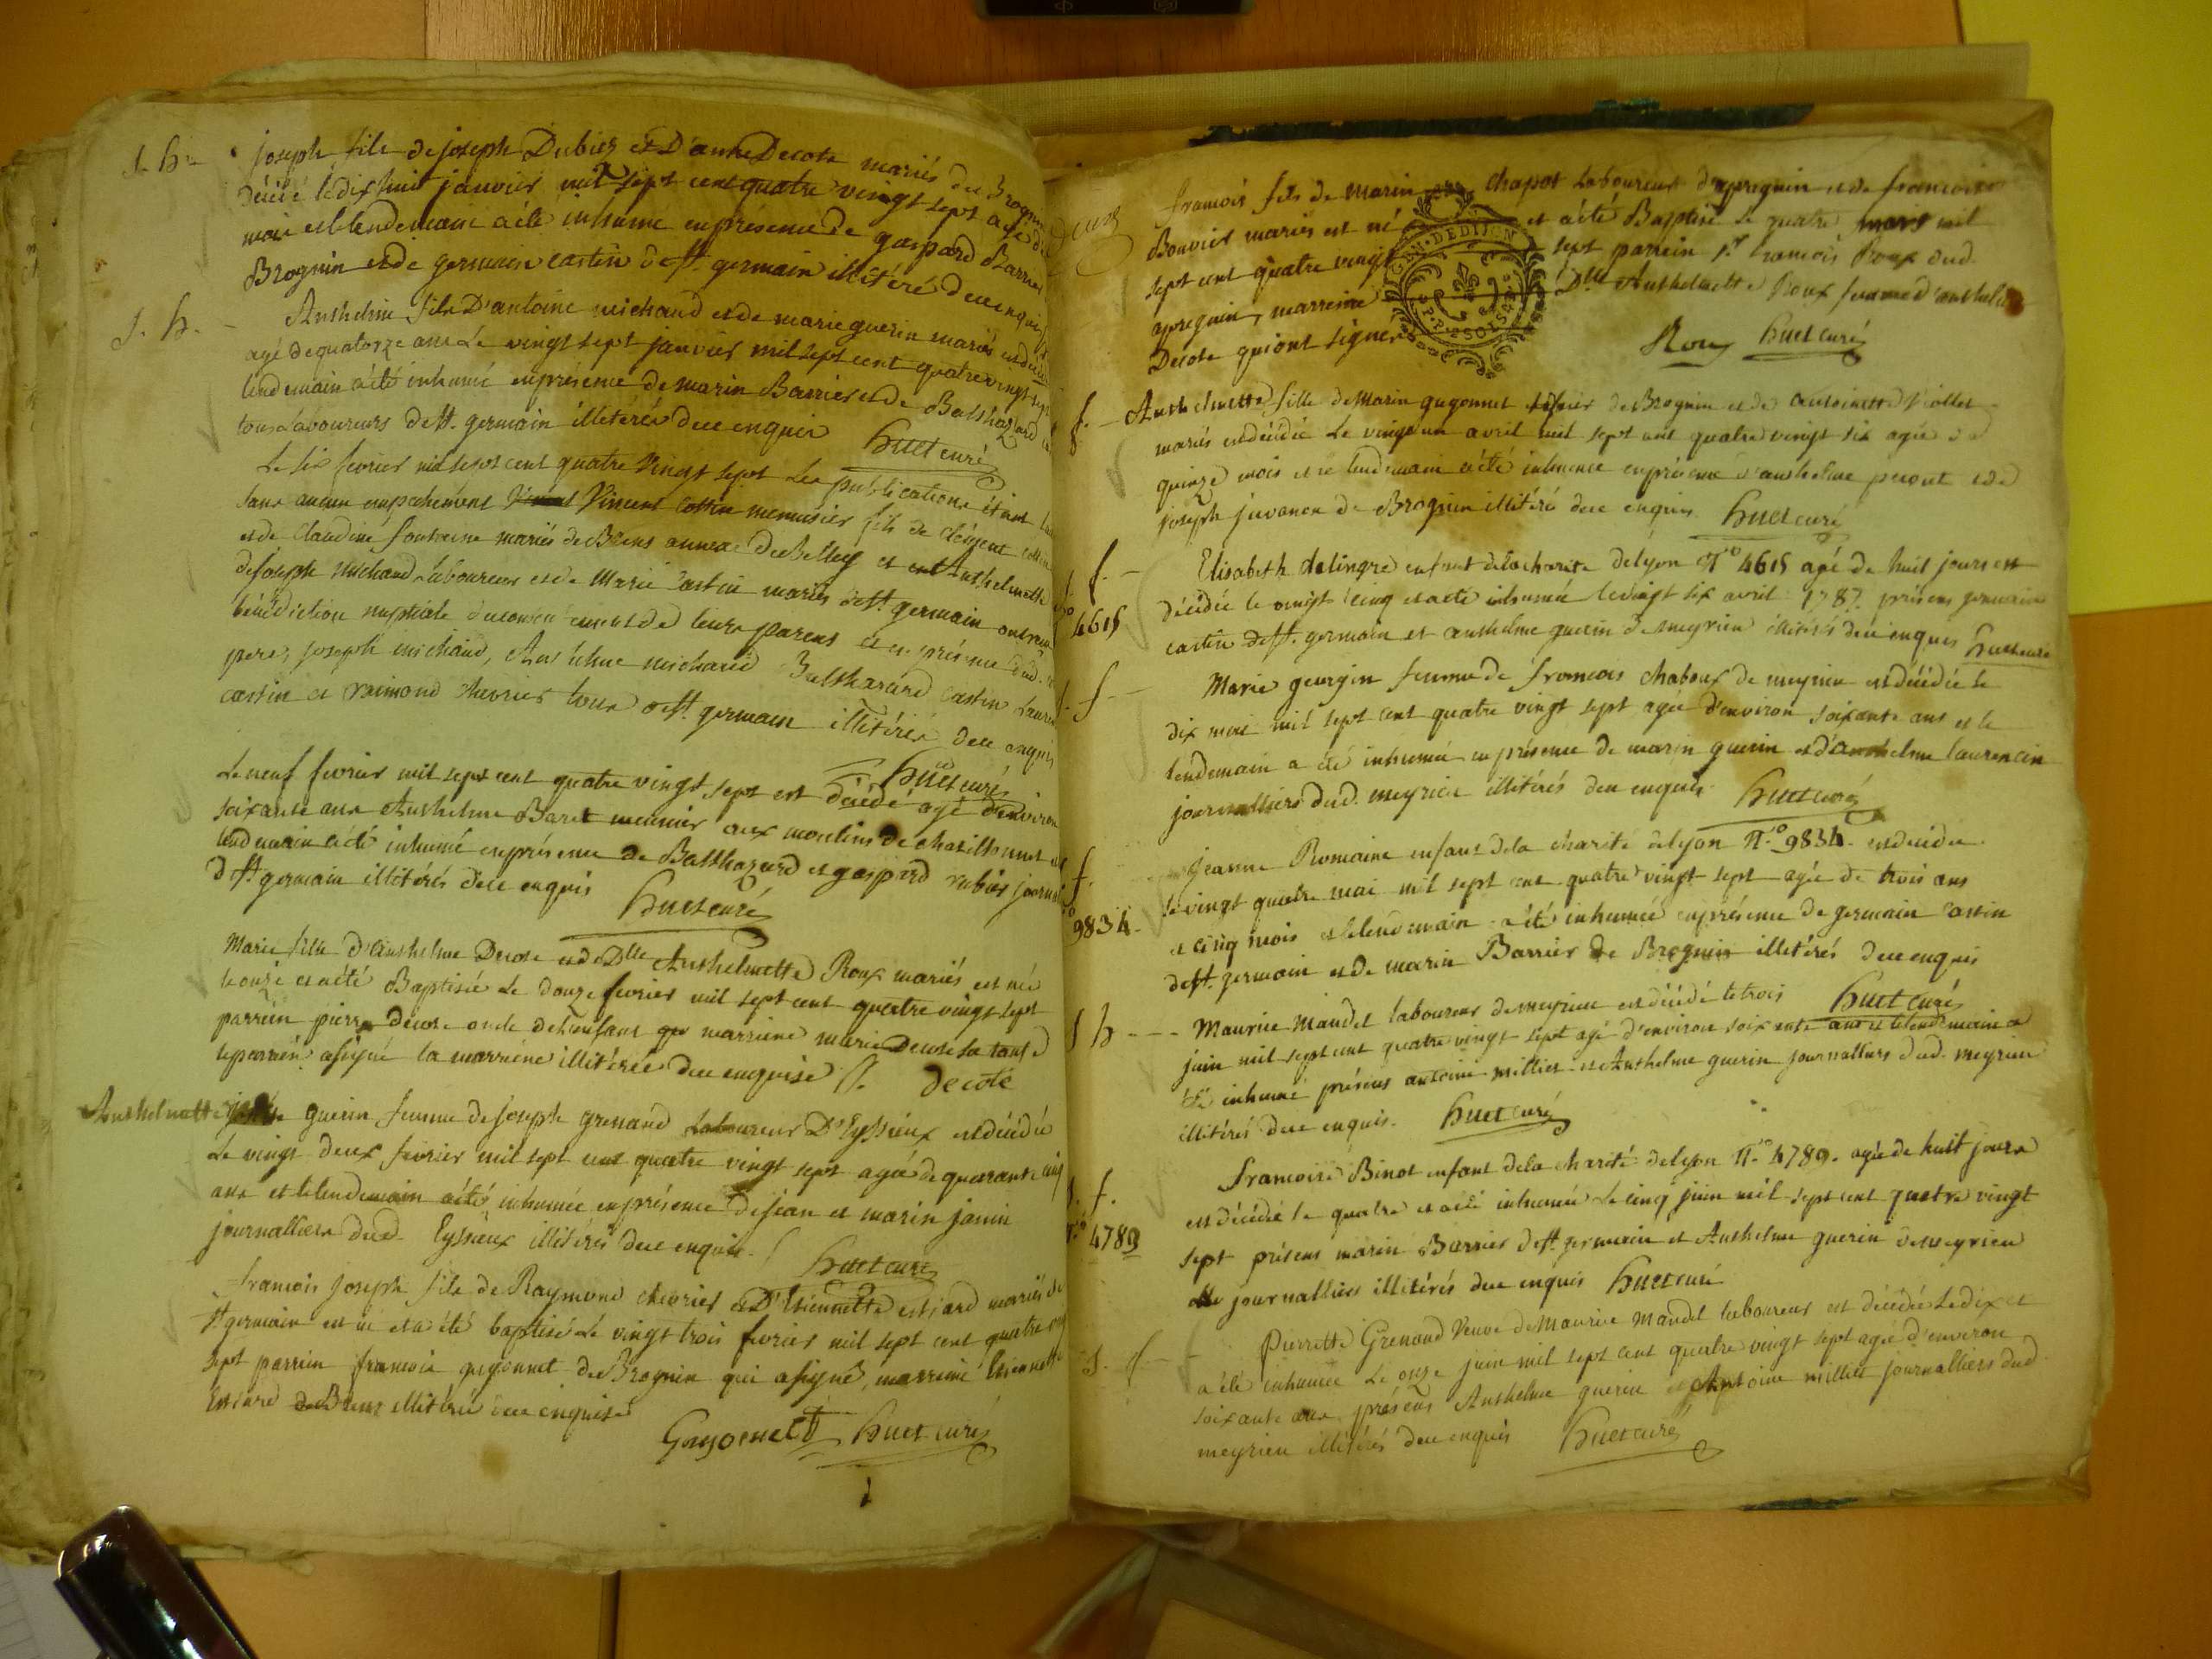 S. h.
joseph fils de joseph Dubiez et D'anne Decote mariés de Brognin
décédé le dix huit janvier mil sept cent quatre vingt sept agé de
mois et le lendemain a été inhumé en présence de gaspard Barrier
Brognin et de germain castin de st. germain illitérés de ce enquis
S. h.
Anthelme fils D'antoine michaud et de marie guerin mariés est décédé
agé de quatorze ans Le vingt sept janvier mil sept cent quatre vingt sept
lendemain a été inhumé en présence de marin Barrier et de Balthazard
tous Laboureurs de st. germain illitérés de ce enquis huet curé
Le six fevrier mil sept cent quatre vingt sept Les publications étant
sans aucun empechement Vincent cottin menuisier fils de clément cottin
et de claudine fontaine mariés de Brens annexe de Belley et Anthelmette
de joseph michaud Laboureur et de Marie Castin mariés de st. germain ont reçu
bénédiction nuptiale du consentement de leurs parens et en présence dud.
pere, joseph michaud, Anthelme michaud Balthazard castin Laurent
castin et raimond chevrier tous de st. germain illitérés de ce enquis
huet curé
Le neuf fevrier mil sept cent quatre vingt sept est décédé agé d'environ
soixante ans Anthelme Baret meunier aux moulins de chatillonnet et le
lendemain a été inhumé en présence de Balthazard et gaspard rubier journ
de st. germain illitérés de ce enquis huet curé
Marie fille d'Anthelme Decote et de Dlle Anthelmette Roux mariés est née
le onze et a été Baptisée Le douze fevrier mil sept cent quatre vingt sept
parrein pierre decote oncle de l'enfant marreine marie Decote sa tante
le parrein a signé la marreine illitérée de ce enquise decote
Anthelmette guerin femme de joseph grenard Laboureur D'Eyssieux est décédée
Le vingt deux fevrier mil sept cent quatre vingt sept agée de quarante cinq
ans et le lendemain a été inhumée en présence de jean et marin janin
journalliers dud. Eyssieux illitérés de ce enquis. huet curé
francois joseph fils de Raymond chevrier et D'Etiennette essiard mariés de
st germain est né et a été baptisé Le vingt trois fevrier mil sept cent quatre vingt
sept parrein francois guyonnet de Brognin qui a signé, marreine Etiennette
Essiard de Brens illitérée de ce enquise
Guyonnet huet curé
francois fils de marin chapot Laboureur d'apregnin et de francoise
Bouvier mariés est né et a été Baptisé Le quatre mars mil
sept cent quatre vingt sept parrein Sr. francois Roux dud.
apregnin, marreine Dlle Anthelmette Roux femme d'anthelme
Decote qui ont signé
GEN. DE DIJON
Roux huet curé
f.
Anthelmette fille de Marin guyonnet de Brognin et de antoinette Viollet
mariés est décédée Le vingt un avril mil sept cent quatre vingt six agée de
quinze mois et le lendemain a été inhumée en présence d'anthelme et de
joseph juvanon de Brognin illitérés de ce enquis huet curé
f.
4615
Elisabeth delingre enfant de la charité de lyon N.º 4615 agé de huit jours est
décédée le vingt cinq et a été inhumée le vingt six avril 1787. présens germain
castin de st. germain et anthelme guerin de meyrieu illitérés de ce enquis huet curé
f.
Marie georgin femme de francois chaboux de meyrieu est décédée le
dix mai mil sept cent quatre vingt sept agée d'environ soixante ans et le
lendemain a été inhumée en présence de marin guerin et d'anthelme laurencin
journalliers dud. meyrieu illitérés de ce enquis. huet curé
f.
9834.
jeanne Romaine enfant de la charité de lyon N.º 9834. est décédée
le vingt quatre mai mil sept cent quatre vingt sept agée de trois ans
et cinq mois et le lendemain a été inhumée en présence de germain castin
de st. germain et de marin Barrier de Brognin illitérés de ce enquis
huet curé
S h
Maurice Mandel laboureur de meyrieu est décédé le trois
juin mil sept cent quatre vingt sept agé d'environ soixante ans et le lendemain a
été inhumé présens antoine milliet et Anthelme guerin journalliers dud. meyrieu
illitérés de ce enquis. huet curé
S. f.
N.º 4789
francoise Binot enfant de la charité de lyon N.º 4789. agée de huit jours
est décédée le quatre et a été inhumée Le cinq juin mil sept cent quatre vingt
sept présens marin Barrier de st. germain et Anthelme guerin de meyrieu
journalliers illitérés de ce enquis huet curé
S. f.
Pierrette Grenoud Veuve de Maurice Mandel laboureur est décédée Le dix et
a été inhumée Le onze juin mil sept cent quatre vingt sept agée d'environ
soixante ans, présens Anthelme guerin et Antoine milliet journalliers dud.
meyrieu illitérés de ce enquis huet curé